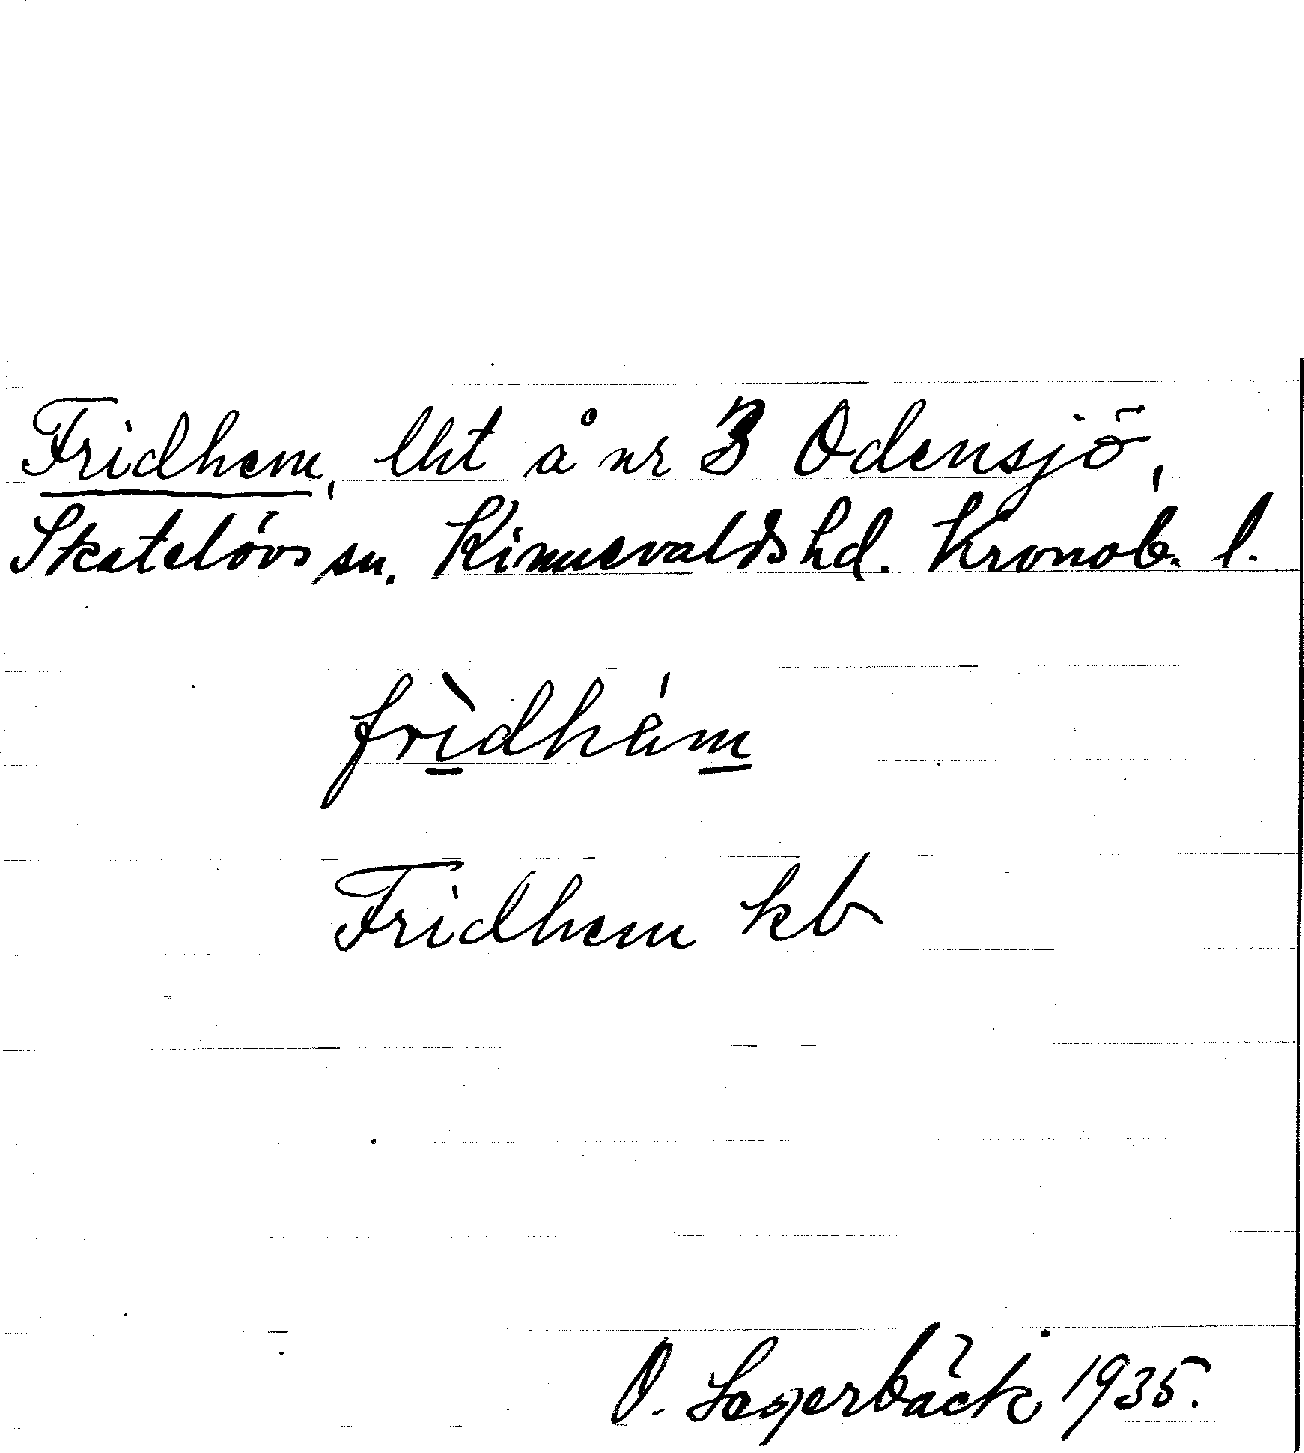 Fridhem, lht å nr 3 Odensjö,
Skatelövs sn. Kinnevalds hd. Kronob. l.
frìdhä́m
Fridhem kb
O. Lagerbäck 1935.